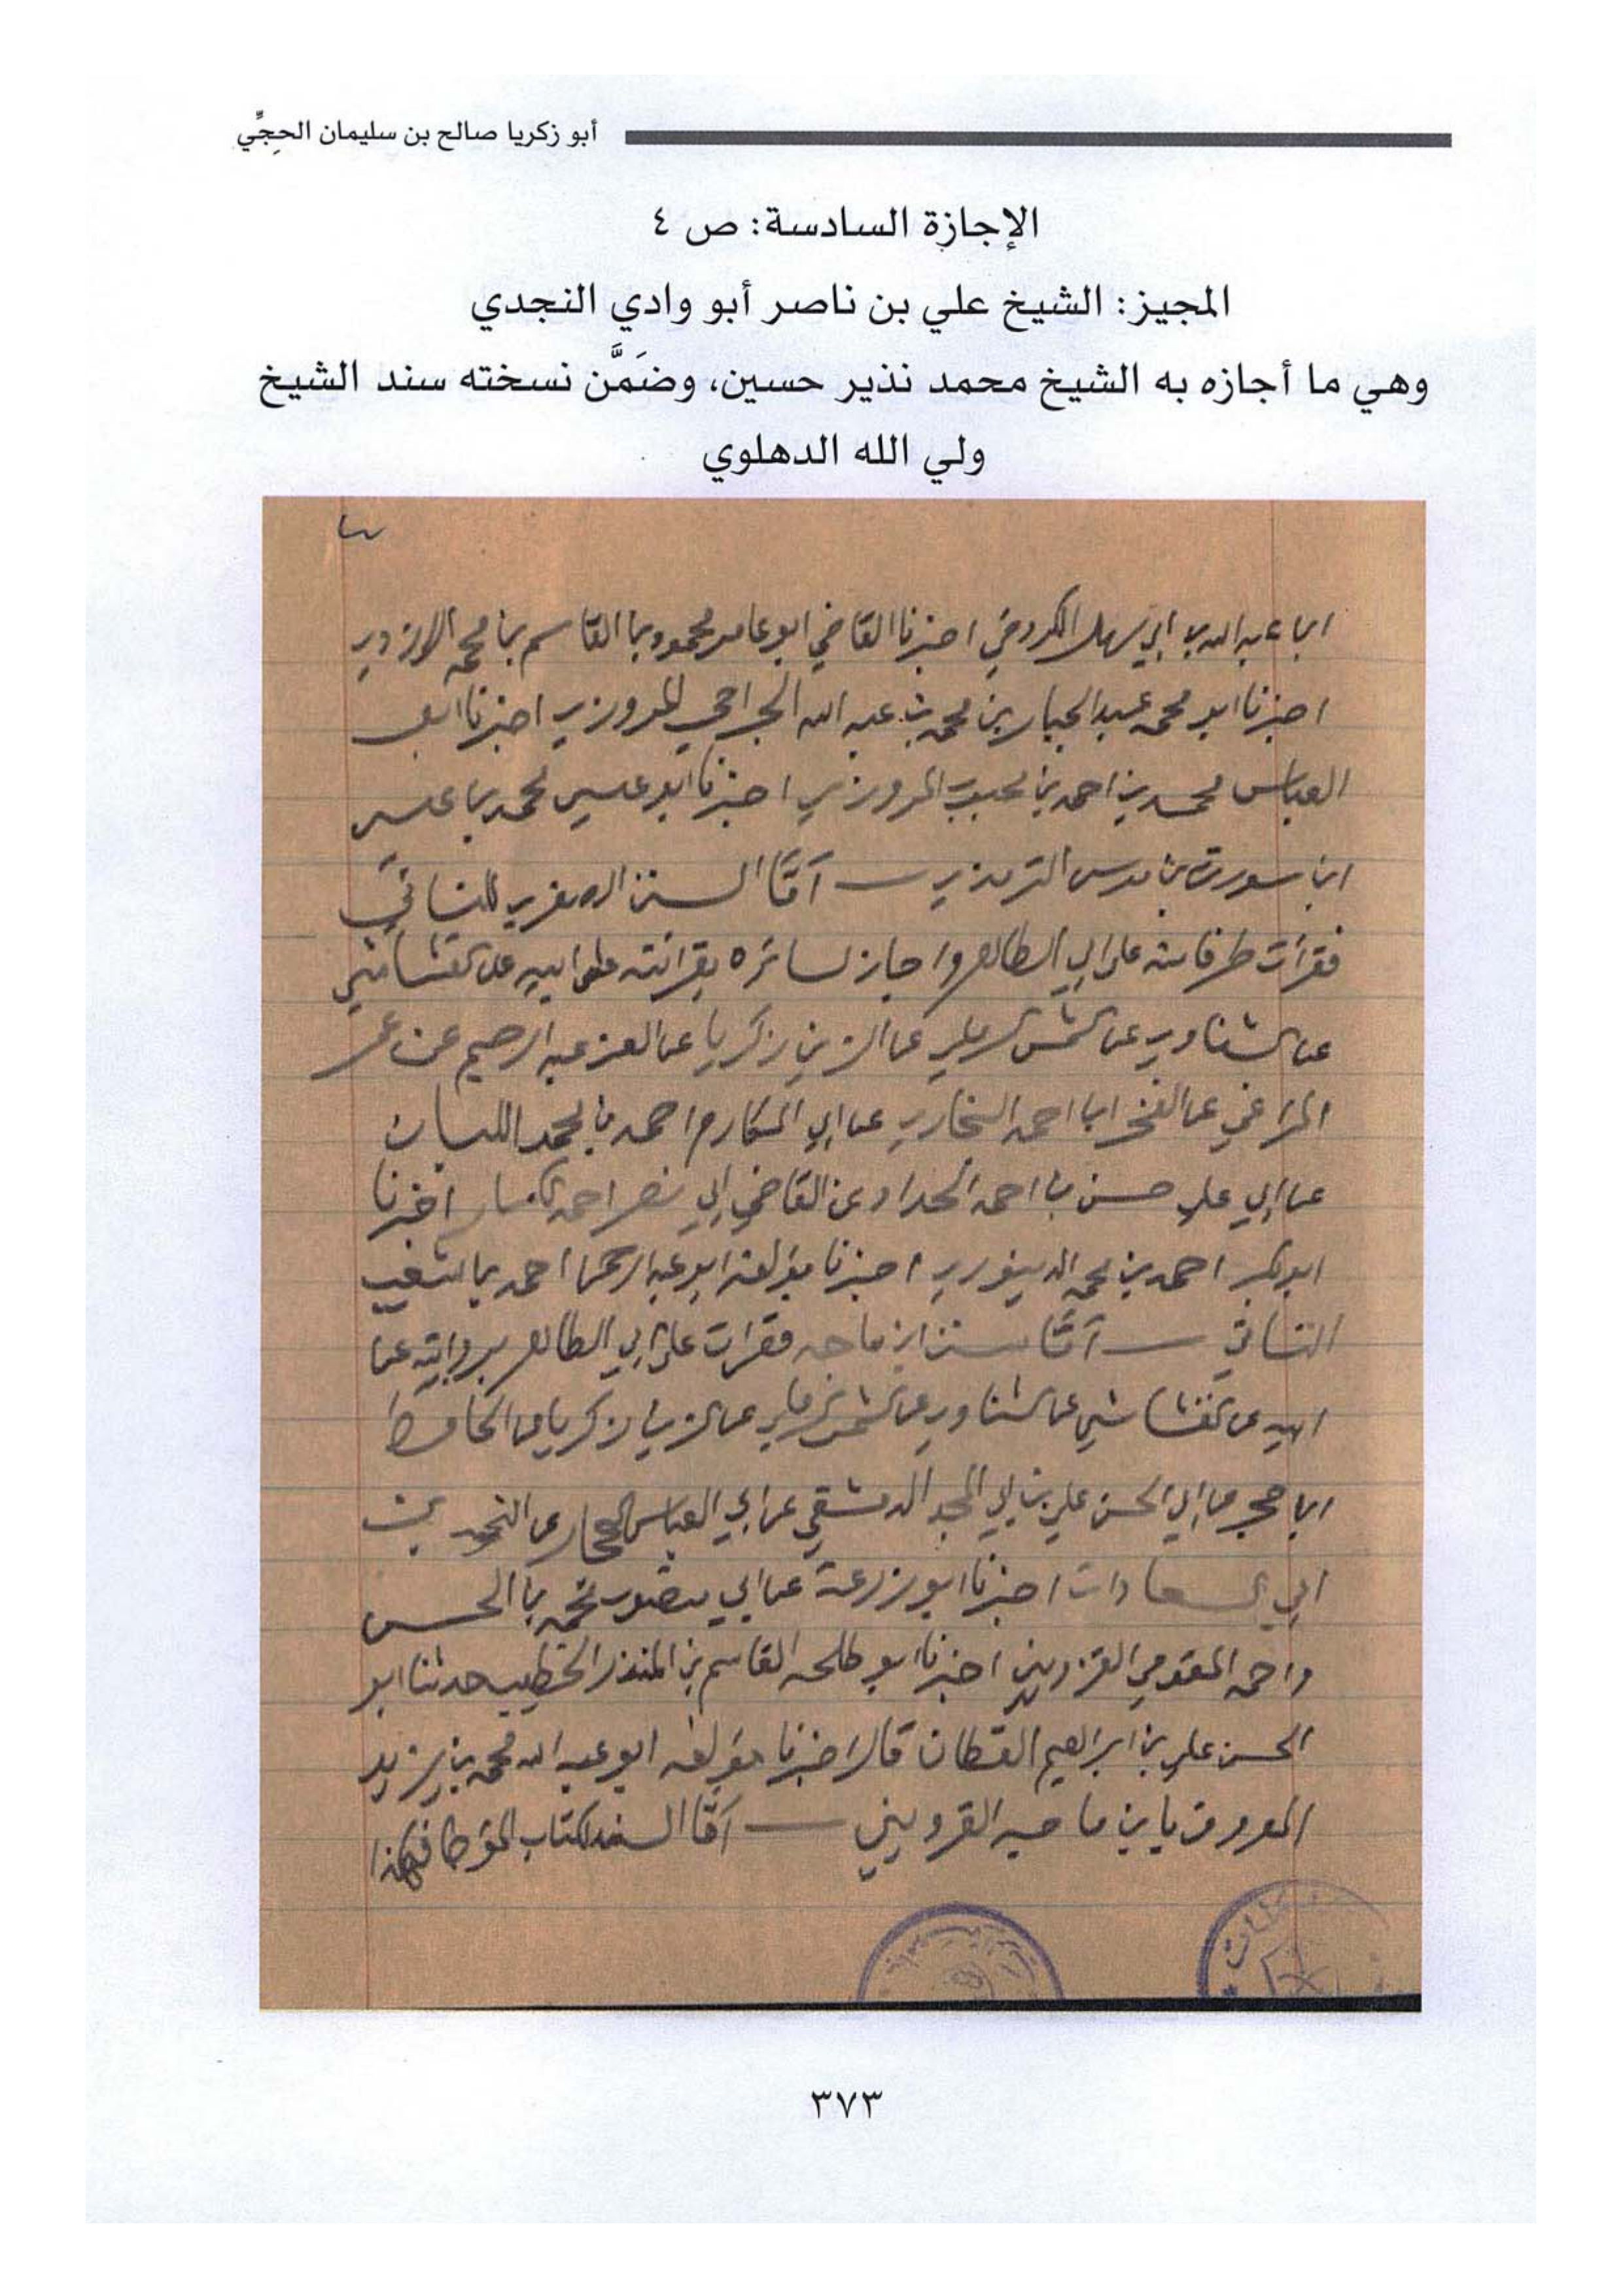 أبو زكريا صالح بن سليمان الحجِّي
الإجازة السادسة: ص ٤
المجيز: الشيخ علي بن ناصر أبو وادي النجدي
وهي ما أجازه به الشيخ محمد نذير حسين، وضَمَّن نسخته سند الشيخ
ولي الله الدهلوي
ابن عبد الله بن ابي سهل الكروخي اخبرنا القاضي ابو عامر محمود بن القاسم بن محمد الازدي
اخبرنا ابو محمد عبد الجبار بن محمد بن عبد الله الجراحي المروزي اخبرنا ابو
العباس محمد بن احمد بن محبوب المروزي اخبرنا ابو عيسى محمد بن عيسى
ابن سورة بن موسى الترمذي — أمّا السنن الصغرى للنسائي
فقرأت طرفا منه على ابي الطاهر واجاز لسائره بقرائته على ابيه عن القشاشي
عن الشناوي عن الشمس الرملي عن الزين زكريا عن العز عبد الرحيم عن عمر
المراغي عن الفخر ابن احمد البخاري عن ابي المكارم احمد بن محمد اللبان
عن ابي علي حسن بن احمد الحداد عن القاضي ابي نصر احمد الكسار اخبرنا
ابو بكر احمد بن محمد الدينوري اخبرنا مؤلفه ابو عبد الرحمن احمد بن شعيب
النسائي — أمّا سنن ابن ماجه فقرأت على ابي الطاهر بروايته عن
ابيه عن القشاشي عن الشناوي عن الشمس الرملي عن الزين زكريا عن الحافظ
ابن حجر عن ابي الحسن علي بن ابي المجد الدمشقي عن ابي العباس الحجار عن انجب بن
ابي السعادات اخبرنا ابو زرعة عن ابي منصور محمد بن الحسن
واحمد المقومي القزويني اخبرنا ابو طلحه القاسم بن المنذر الخطيب حدثنا ابو
الحسن علي بن ابراهيم القطان قال اخبرنا مؤلفه ابو عبد الله محمد بن يزيد
المعروف بابن ماجه القزويني — أمّا السند لكتاب المؤطا فهكذا
٣٧٣